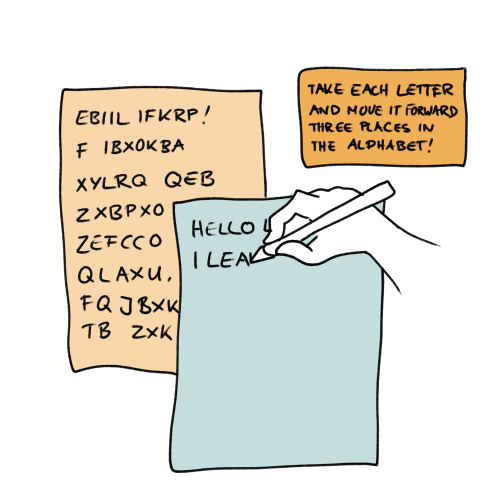 EBIIL IFKRP!
F IBXOKBA
XYLRQ QEB
ZXBPXO
ZEFCCO
QLAXU,
FQ JBXK
TB ZXK
HELLO
I LEA
TAKE EACH LETTER
AND MOVE IT FORWARD
THREE PLACES IN
THE ALPHABET!